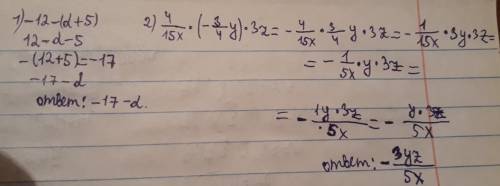 1) -12-(d+5)
12-d-5
-(12+5)=-17
-17-d
ответ: -17-d.
2) 4/15x · (-3/4 y) · 3z = - 4/15x · 3/4 y · 3z = - 1/15x · 3y · 3z =
= - 1/5x · y · 3z =
= - 1y·3z/·5x = - y·3z/5x
ответ: - 3yz/5x